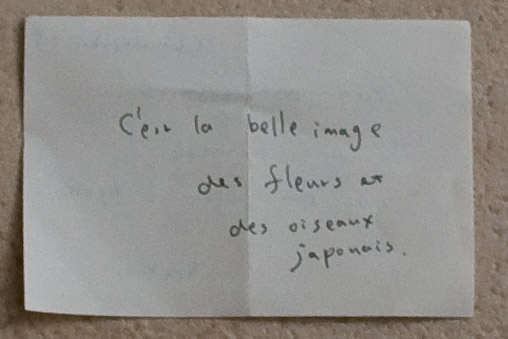 C'est la belle image
des fleurs et
des oiseaux
japonais.